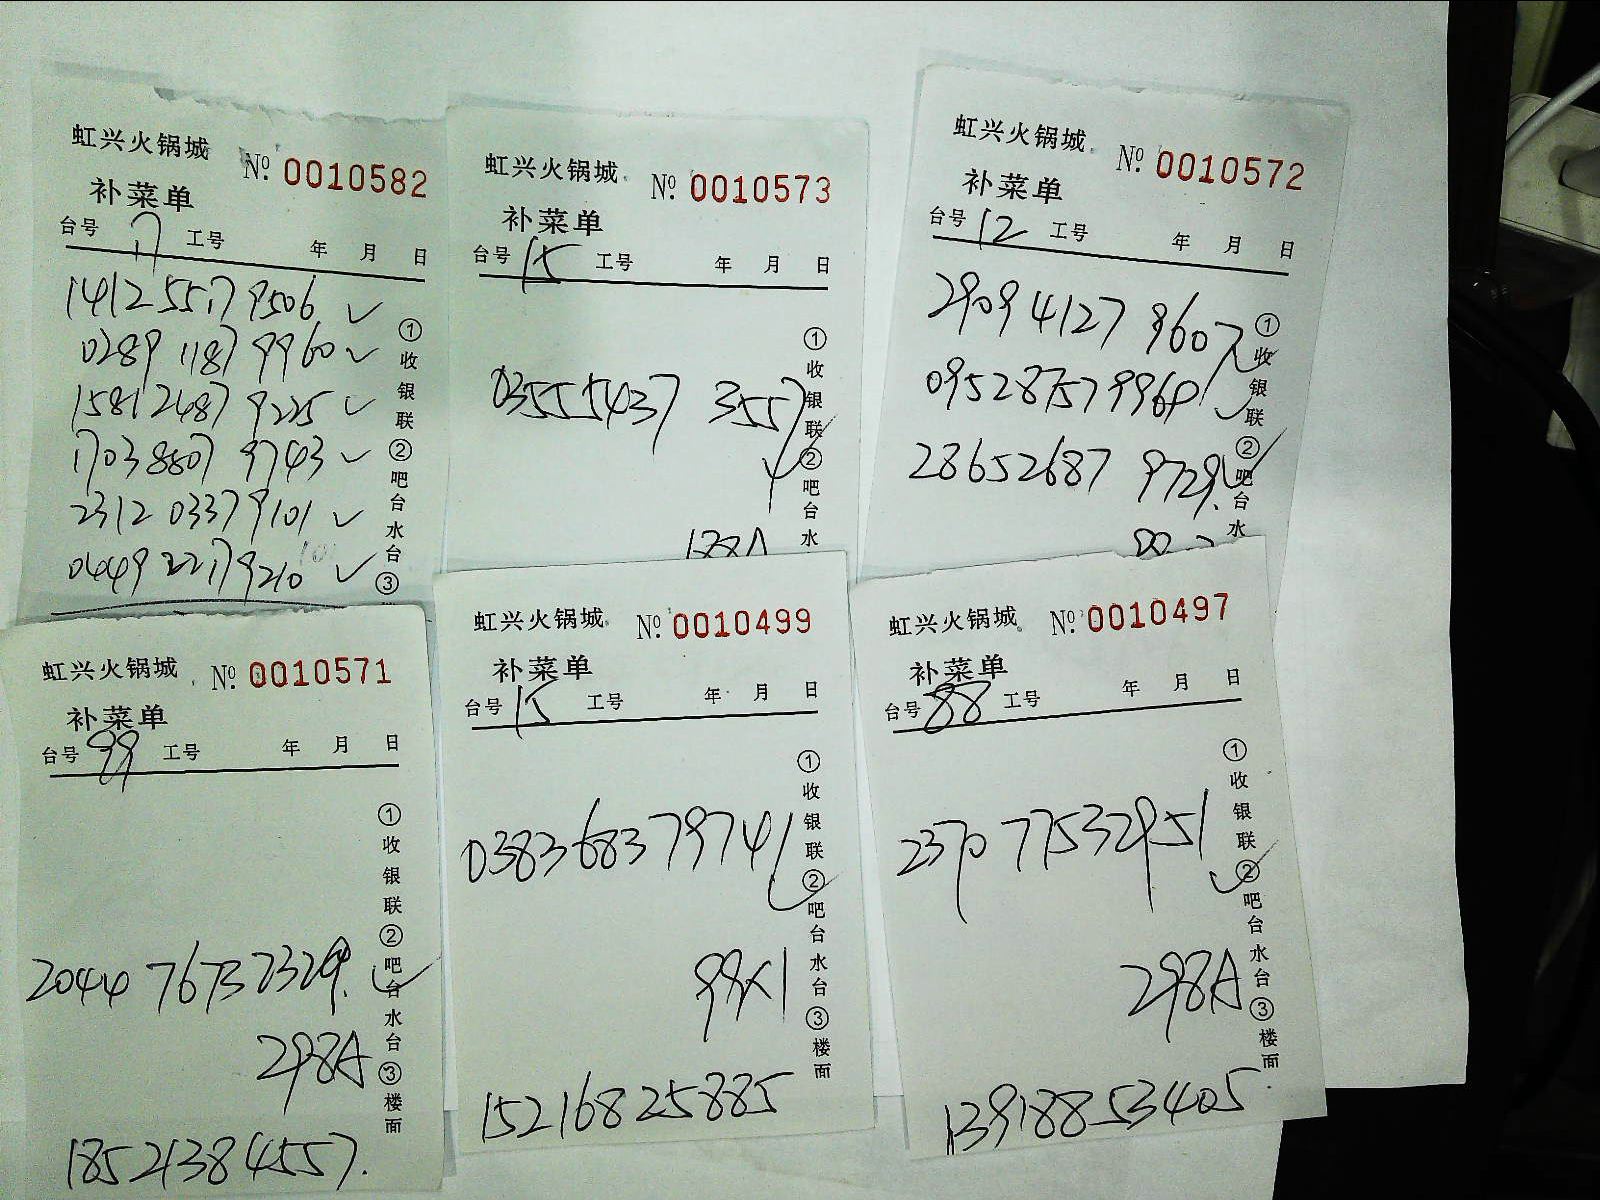 虹兴火锅城 No. 0010582
补菜单
台号 17 工号 年 月 日
1412 5517 9506 ✓
0289 1187 9960 ✓
1581 2487 9225 ✓
1703 8807 9743 ✓
2312 0337 9101 ✓
0449 2217 9210 ✓
①收银联②吧台水台③
虹兴火锅城 No. 0010573
补菜单
台号 15 工号 年 月 日
03555437 3557 ✓
①收银联②吧台水
虹兴火锅城 No. 0010572
补菜单
台号 12 工号 年 月 日
2909 4127 9607 ✓
09528757 9969 ✓
28652687 9729. ✓
①收银联②吧台水
虹兴火锅城 No. 0010571
补菜单
台号 99 工号 年 月 日
2044 7673 7329. ✓
298A
18521384557.
①收银联②吧台水台③楼面
虹兴火锅城 No. 0010499
补菜单
台号 15 工号 年 月 日
0383 6837 9741 ✓
99X1
15216825885
①收银联②吧台水台③楼面
虹兴火锅城 No. 0010497
补菜单
台号 88 工号 年 月 日
2370 77532951 ✓
298A
13918853405
①收银联②吧台水台③楼面